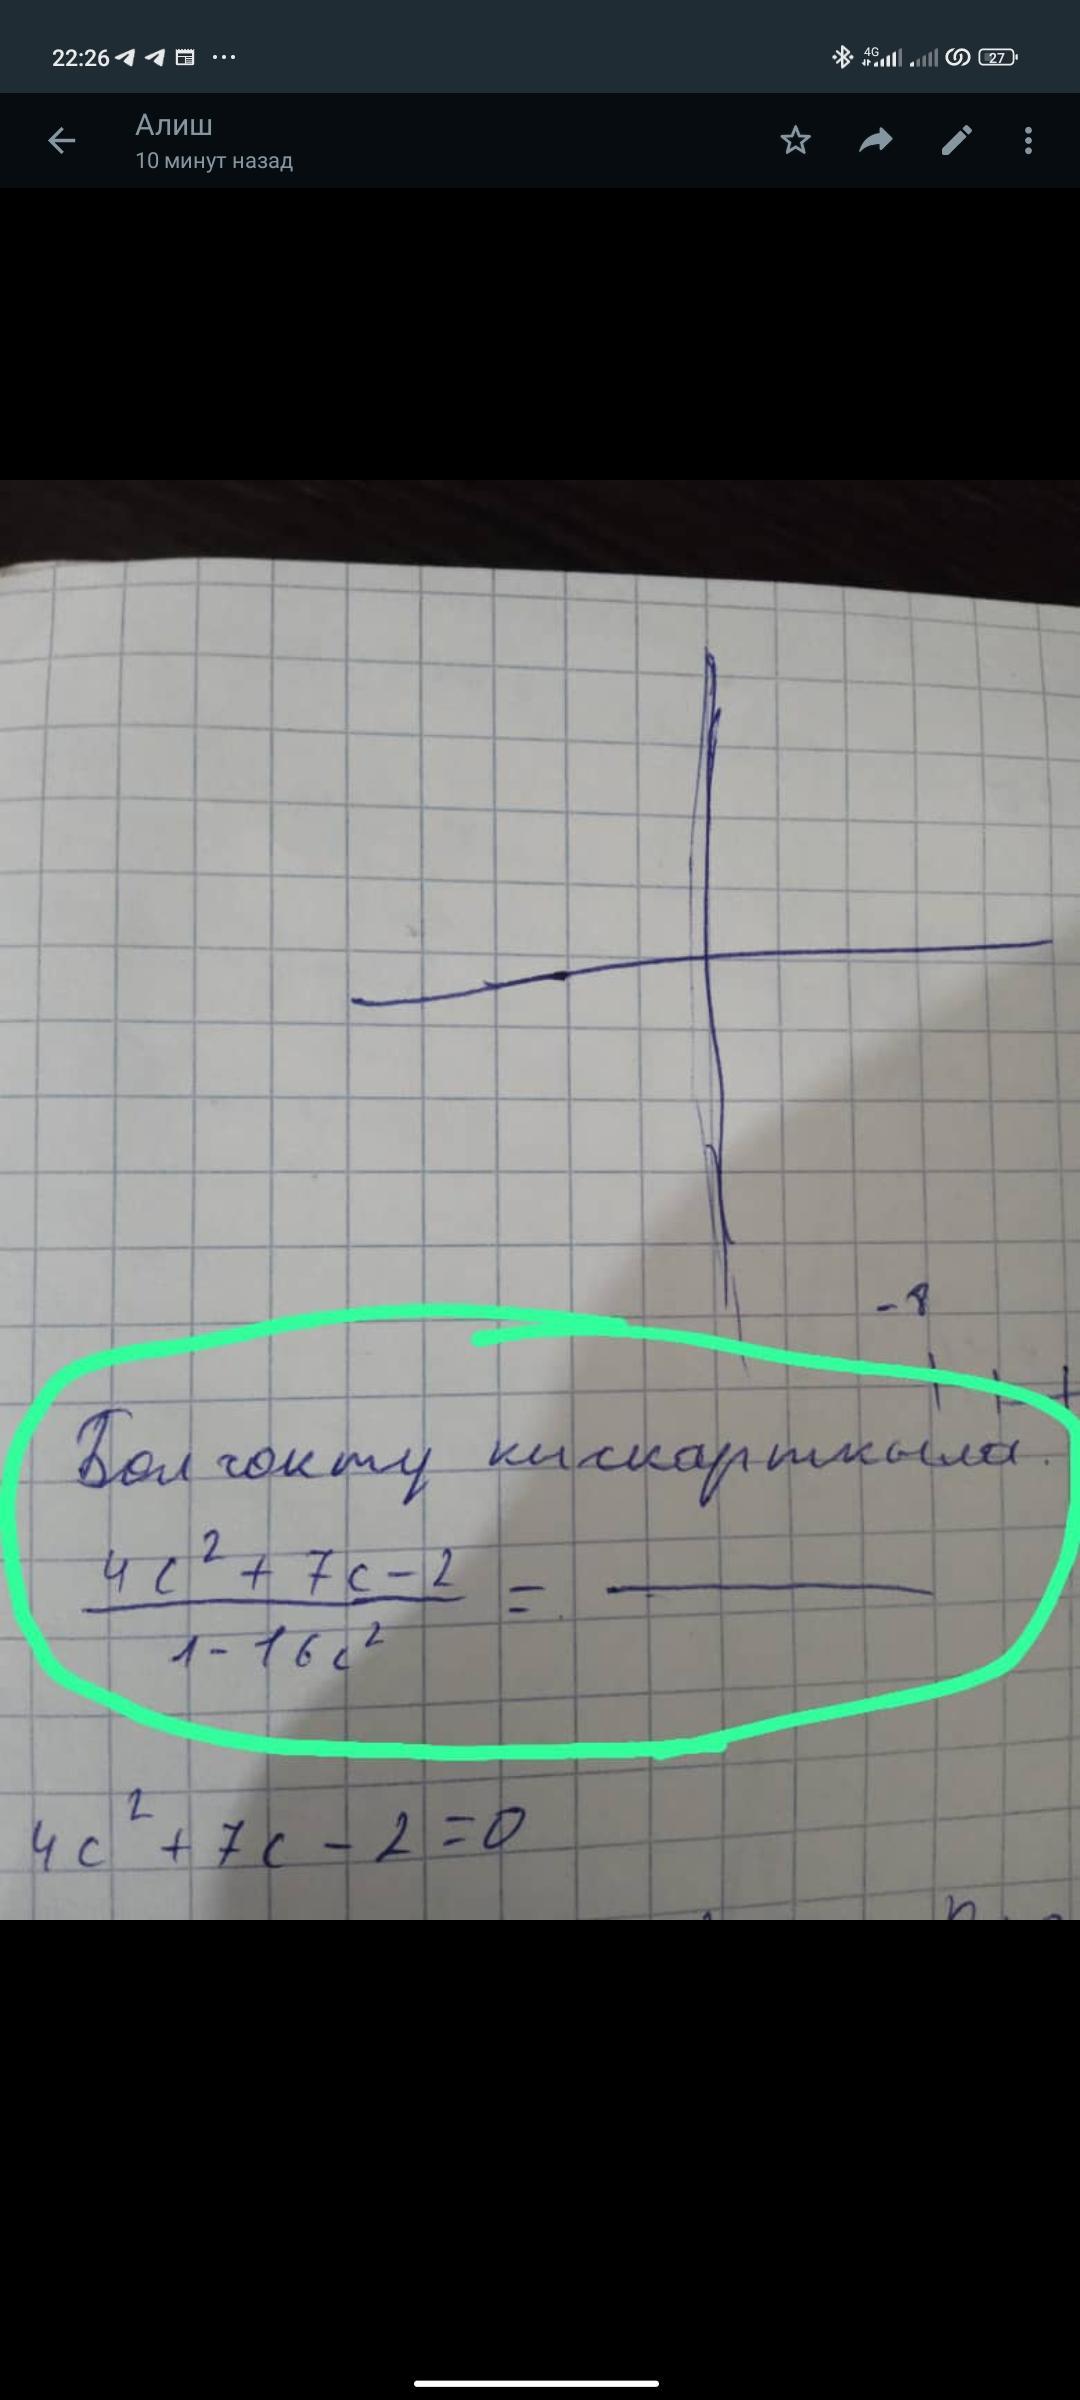 22:26
4G
27
Алиш
10 минут назад
-8
Бөлчөкту кискарткыла.
4c² + 7c - 2 =
1 - 16c²
4c² + 7c - 2 = 0